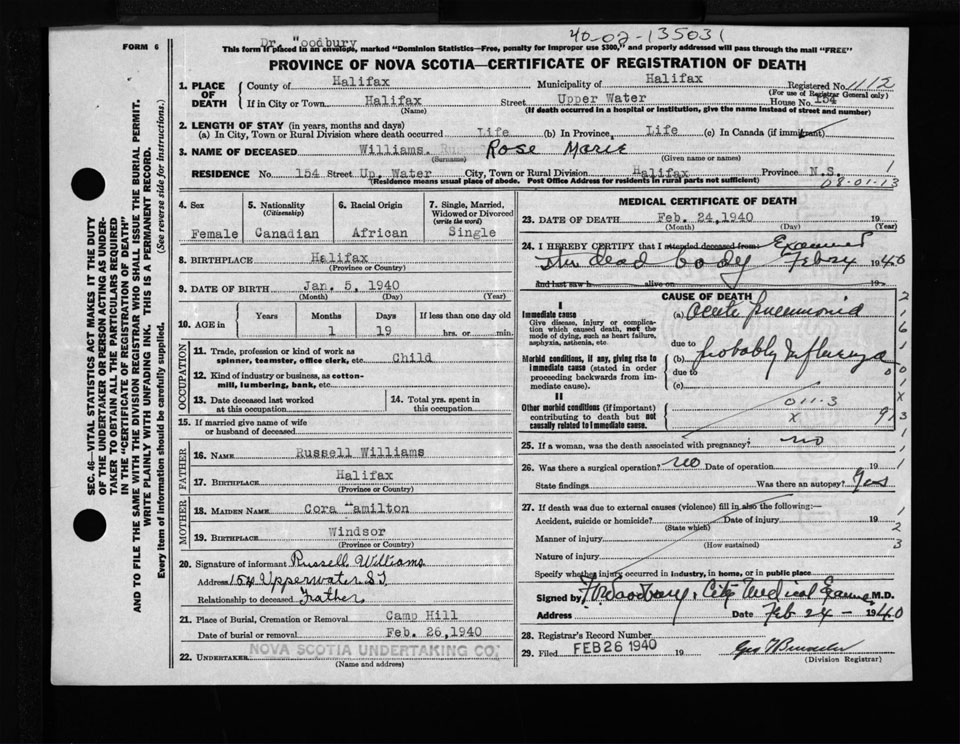 FORM 6
Dr. Woodbury
40-02-135031
This form if placed in an envelope, marked "Dominion Statistics—Free, penalty for improper use $300," and properly addressed will pass through the mail "FREE"
PROVINCE OF NOVA SCOTIA—CERTIFICATE OF REGISTRATION OF DEATH
1. PLACE OF DEATH
County of Halifax Municipality of Halifax Registered No. 1112
(For use of Registrar General only)
If in City or Town Halifax Street Upper Water House No. 154
(Name) (If death occurred in a hospital or institution, give the name instead of street and number)
2. LENGTH OF STAY (in years, months and days)
(a) In City, Town or Rural Division where death occurred Life (b) In Province, Life (c) In Canada (if immigrant)
3. NAME OF DECEASED Williams. Rose Marie
(Surname) (Given name or names)
RESIDENCE No. 154 Street Up. Water City, Town or Rural Division Halifax Province N.S. 1
(Residence means usual place of abode. Post Office Address for residents in rural parts not sufficient)
08-01-13
4. Sex
Female
5. Nationality
(Citizenship)
Canadian
6. Racial Origin
African
7. Single, Married, Widowed or Divorced
(write the word)
Single
8. BIRTHPLACE Halifax
(Province or Country)
9. DATE OF BIRTH Jan. 5, 1940
(Month) (Day) (Year)
10. AGE in Years Months Days If less than one day old
1 19 hrs. or min.
OCCUPATION
11. Trade, profession or kind of work as spinner, teamster, office clerk, etc. Child
12. Kind of industry or business, as cotton-mill, lumbering, bank, etc.
13. Date deceased last worked at this occupation
14. Total yrs. spent in this occupation
15. If married give name of wife or husband of deceased
FATHER
16. NAME Russell Williams
17. BIRTHPLACE Halifax
(Province or Country)
MOTHER
18. MAIDEN NAME Cora Hamilton
19. BIRTHPLACE Windsor
(Province or Country)
20. Signature of informant Russell Williams
Address 154 Upperwater St
Relationship to deceased Father
21. Place of Burial, Cremation or Removal Camp Hill
Date of burial or removal Feb. 26, 1940
22. UNDERTAKER NOVA SCOTIA UNDERTAKING CO.
(Name and address)
MEDICAL CERTIFICATE OF DEATH
23. DATE OF DEATH Feb. 24, 1940 19
(Month) (Day) (Year)
24. I HEREBY CERTIFY that I attended deceased from Examined
the dead body Feb 24 1940
And last saw h alive on 19
CAUSE OF DEATH
I
Immediate cause
Give disease, injury or complication which caused death, not the mode of dying, such as heart failure, asphyxia, asthenia, etc.
(a) Acute Pneumonia
due to
Morbid conditions, if any, giving rise to immediate cause (stated in order proceeding backwards from immediate cause).
(b) probably Influenza
due to
(c)
II
Other morbid conditions (if important) contributing to death but not causally related to immediate cause.
011.3
X
25. If a woman, was the death associated with pregnancy? no
26. Was there a surgical operation? no Date of operation 19
State findings Was there an autopsy? Yes
27. If death was due to external causes (violence) fill in also the following:—
Accident, suicide or homicide? Date of injury 19
(State which)
Manner of injury
(How sustained)
Nature of injury
Specify whether injury occurred in industry, in home, or in public place
Signed by F. Woodbury, City Medical Examiner M.D.
Address Date Feb 24 - 1940
28. Registrar's Record Number
29. Filed FEB 26 1940 19
(Division Registrar)
SEC. 46—VITAL STATISTICS ACT MAKES IT THE DUTY
OF THE UNDERTAKER OR PERSON ACTING AS UNDERTAKER TO OBTAIN ALL THE PARTICULARS REQUIRED
IN THE "CERTIFICATE OF REGISTRATION OF DEATH"
AND TO FILE THE SAME WITH THE DIVISION REGISTRAR WHO SHALL ISSUE THE BURIAL PERMIT.
WRITE PLAINLY WITH UNFADING INK. THIS IS A PERMANENT RECORD.
Every item of information should be carefully supplied. (See reverse side for instructions.)